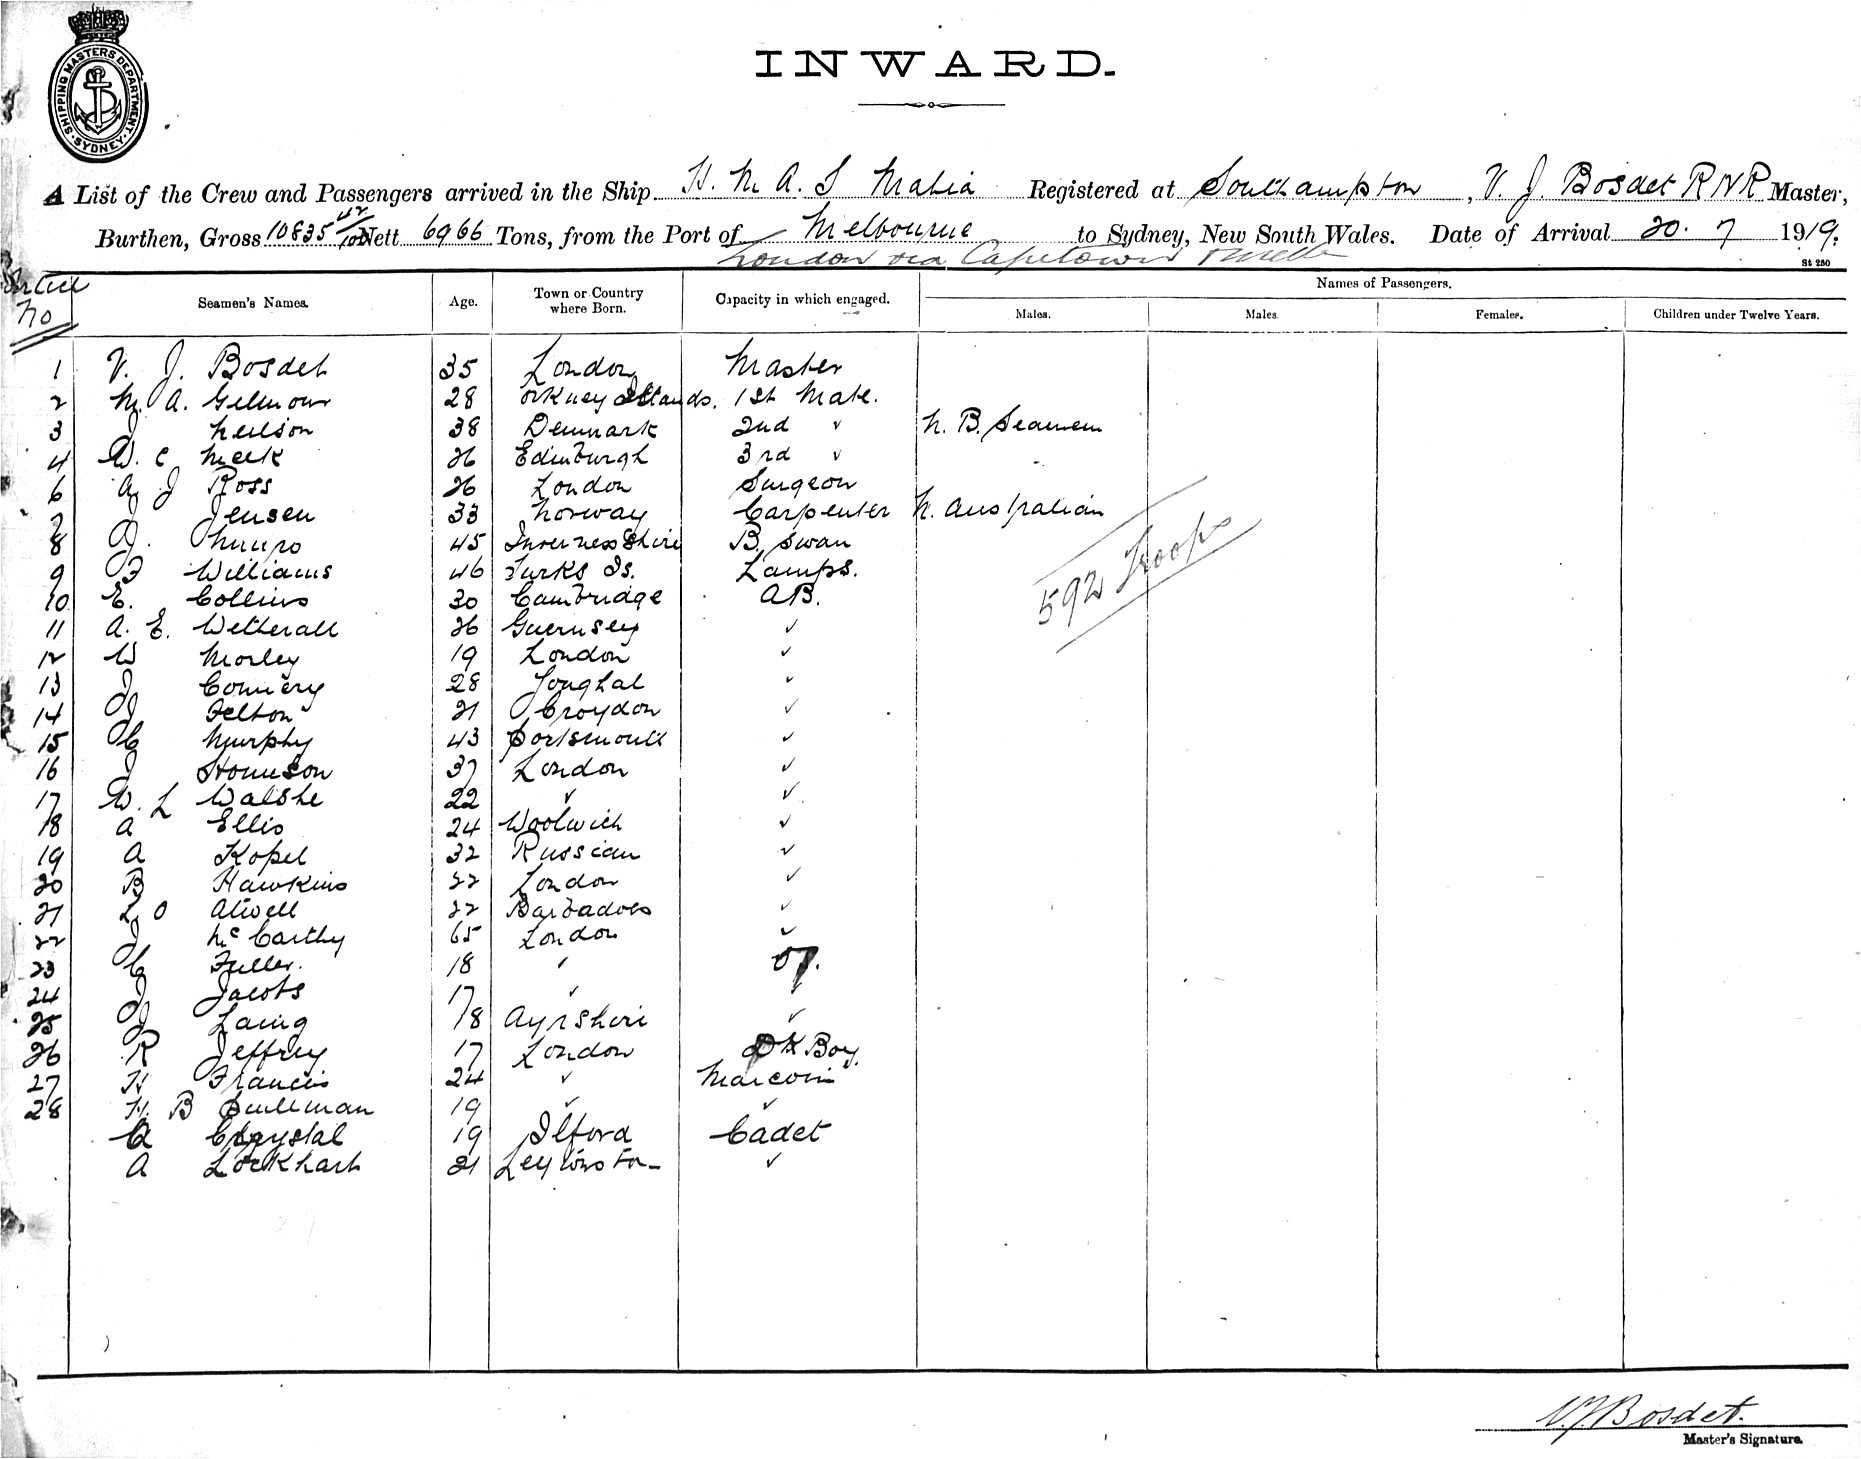 SHIPPING MASTERS DEPARTMENT. SYDNEY.
INWARD.
A List of the Crew and Passengers arrived in the Ship H. M. A. S Mahia Registered at Southampton, V. J. Bosdet RNR Master,
Burthen, Gross 10835 42/100 Nett 6966 Tons, from the Port of Melbourne to Sydney, New South Wales. Date of Arrival 20. 7 1919.
London via Capetown
St 250
No Seamen's Names. Age. Town or Country where Born. Capacity in which engaged. Names of Passengers.
Males. Males Females. Children under Twelve Years.
1 V. J. Bosdet 35 London Master
2 M. A. Gilmour 28 Orkney Islands. 1st Mate.
3 J Neilson 38 Denmark 2nd " N. B. Seamen
4 W. C Meek 26 Edinburgh 3rd "
6 A J Ross 26 London Surgeon
7 J Jensen 33 Norway Carpenter N. Australian
8 J. Munro 45 Inverness Shire B. Swan
9 J Williams 46 Turks Is. Lamps.
592 Troops
10 E. Collins 30 Cambridge AB.
11 A. E. Wetherall 26 Guernsey "
12 W Morley 19 London "
13 J Connery 28 Youghal "
14 J Felton 21 Croydon "
15 C Murphy 43 Portsmouth "
16 J 37 London "
17 W. L Walshe 22 " "
18 A Ellis 24 Woolwich "
19 A Kopel 32 Russian "
20 B Hawkins 22 London "
21 L O Atwell 22 Barbadoes "
22 J McCarthy 65 London "
23 C Fuller. 18 " OS.
24 J Jacobs 17 " "
25 J Laing 18 Ayrshire "
26 R Jeffrey 17 London DK Boy.
27 H Francis 24 " Marconi
28 H. B Pullman 19 " "
C Chrystal 19 Ilford Cadet
A Lockhart 21 "
V. J. Bosdet.
Master's Signature.